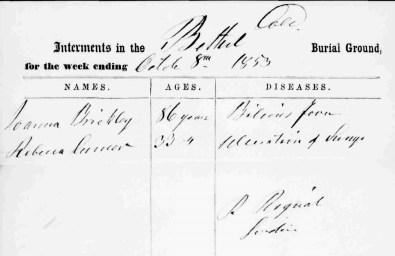 Cole.
Interments in the Bethel Burial Ground,
for the week ending Octob 8th 1853
NAMES. AGES. DISEASES.
Joanna Brickley 86 years Bilious Fever
Rebecca 33 " Ulceration of Lungs
P
Sexton